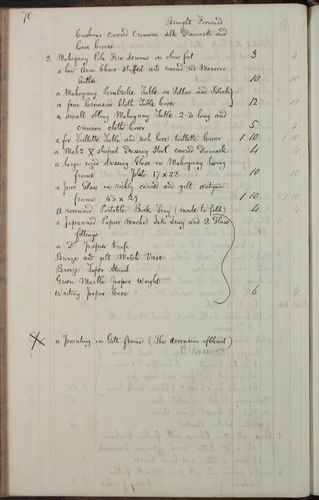 70
Brought Forward
Cushions covered Crimson silk Damask and
case covers
2 Mahogany Pole Fire Screens on claw feet 3 3
a low Arm Chair stuffed and covered in Morocco
leather 10 10
a Mahogany Pembroke Table on Pillar and Block
a fine Crimson Cloth Table Cover 12 12
a small oblong Mahogany Table 2-3 long and
crimson cloth cover 5
a for Toilette Table and rich lace toilette Cover 1 10 1 10
a Mahy X shaped Dressing Stool covered Damask 4
a large sized dressing Glass in Mahogany Swing
frame Plate 17 x 22 10 10
a pier Glass in richly carved and gilt antique
frame 45 x 29 1 10 1 10
A rosewood Portable Book Tray (made to fold) 4
a Japanned Papier mache Ink Tray and 2 Glass
fittings
a Do paper Knife
Bronze and gilt Match Vase
Bronze Taper Stand
Green Marble Paper Weight
Writing paper Case 6 6
X a Painting in Gilt frame (The ascension of